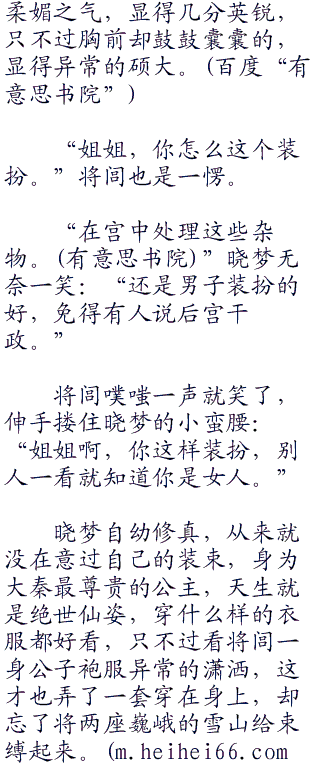 柔媚之气，显得几分英锐，
只不过胸前却鼓鼓囊囊的，
显得异常的硕大。(百度“有
意思书院”)
“姐姐，你怎么这个装
扮。”将闾也是一愣。
“在宫中处理这些杂
物。(有意思书院)”晓梦无
奈一笑：“还是男子装扮的
好，免得有人说后宫干
政。”
将闾噗嗤一声就笑了，
伸手搂住晓梦的小蛮腰：
“姐姐啊，你这样装扮，别
人一看就知道你是女人。”
晓梦自幼修真，从来就
没在意过自己的装束，身为
大秦最尊贵的公主，天生就
是绝世仙姿，穿什么样的衣
服都好看，只不过看将闾一
身公子袍服异常的潇洒，这
才也弄了一套穿在身上，却
忘了将两座巍峨的雪山给束
缚起来。(m.heihei66.com